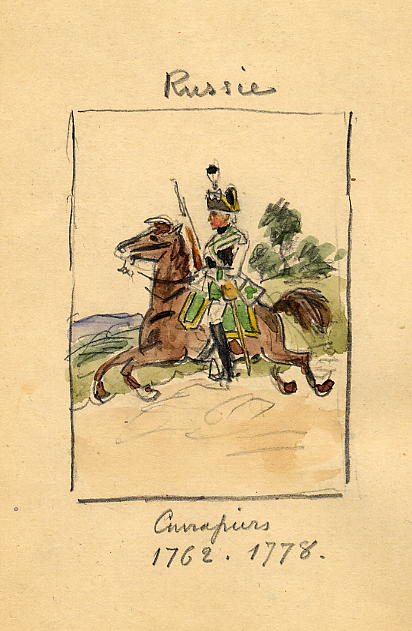 Russie
Cuirassiers
1762. 1778.